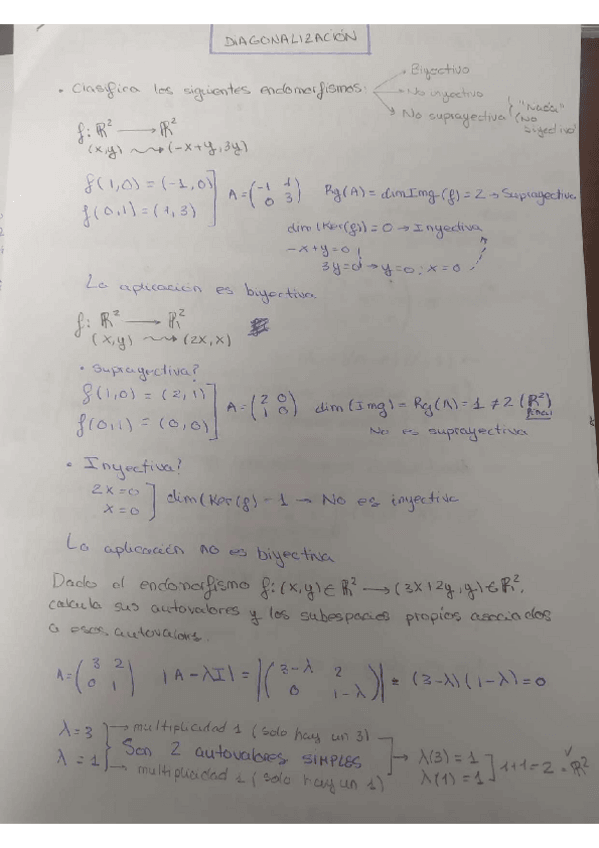 DIAGONALIZACIÓN
• Clasifica los siguientes endomorfismos:
• Biyectivo
• No inyectivo
No suprayectiva
"Nada"
(No
f: ℝ² → ℝ²
(x,y) ⇝ (-x+y, 3y)
f(1,0) = (-1,0)
f(0,1) = (1,3)
A = (-1 1
0 3)
Rg(A) = dim Img(f) = 2 → Suprayectiva
dim(Ker(f)) = 0 → Inyectiva
-x+y=0
3y=0 → y=0; x=0
La aplicación es biyectiva
f: ℝ² → ℝ²
(x,y) ⇝ (2x,x)
• Suprayectiva?
f(1,0) = (2,1)
f(0,1) = (0,0)
A = (2 0
1 0)
dim(Img) = Rg(A) = 1 ≠ 2 (ℝ²)
final
No es suprayectiva
• Inyectiva?
2x=0
x=0
dim(Ker(f) - 1 → No es inyectiva
La aplicación no es biyectiva
Dado el endomorfismo f: (x,y) ∈ ℝ² → (3x+2y, y) ∈ ℝ²,
calcula sus autovalores y los subespacios propios asociados
a esos autovalores.
A = (3 2
0 1)
|A-λI| = |(3-λ 2
0 1-λ)| = (3-λ)(1-λ)=0
λ=3 → multiplicidad 1 (solo hay un 3)
Son 2 autovalores SIMPLES
λ=1 → multiplicidad 1 (solo hay un 1)
→ λ(3) = 1
λ(1) = 1
1+1=2=ℝ² ✓